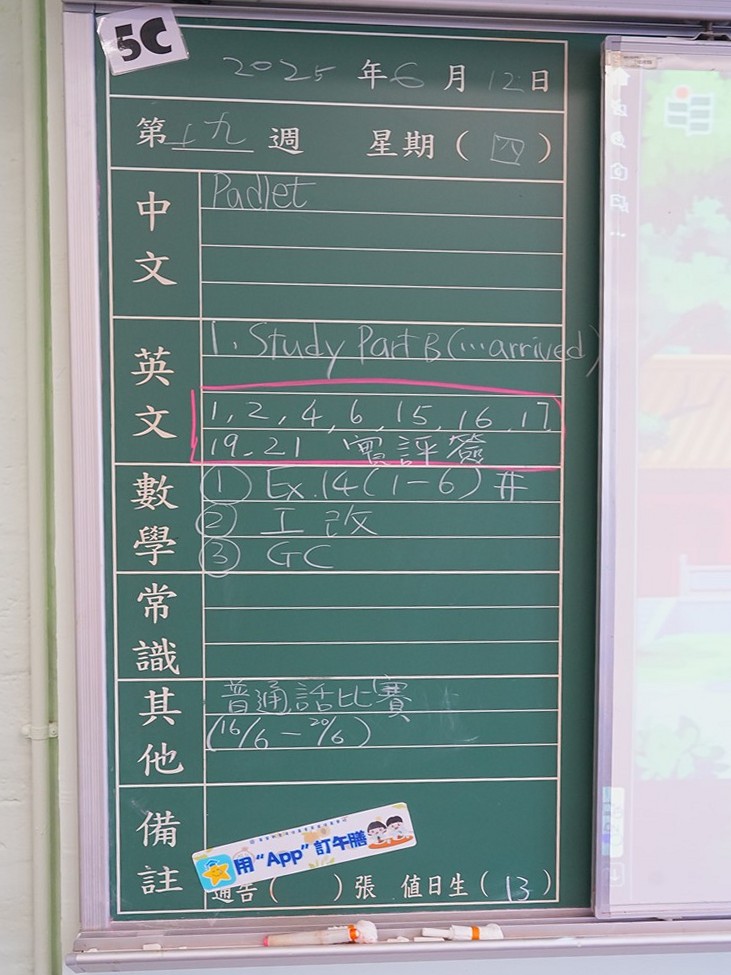 5C
2025 年 6 月 12 日
第 十九 週 星期 ( 四 )
中文
Padlet
英文
1. Study Part B (...arrived)
1, 2, 4, 6, 15, 16, 17
19, 21 實評簽
數學
① Ex. 14 (1-6) #
② 工改
③ GC
常識
其他
普通話比賽
(16/6 - 20/6)
備註
用“App”訂午膳
通告 ( ) 張 值日生 ( 13 )